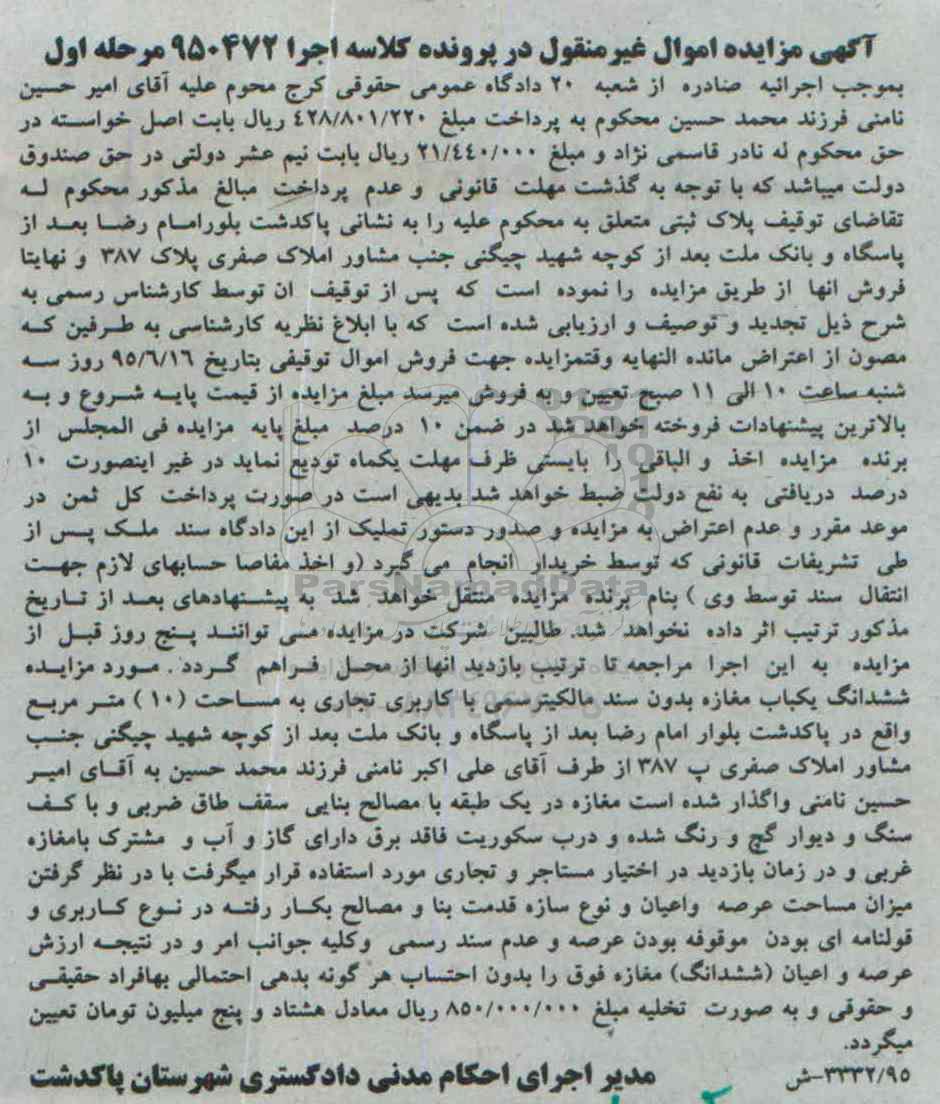 آگهی مزایده اموال غیرمنقول در پرونده کلاسه اجرا ۹۵۰۴۷۲ مرحله اول
بموجب اجرائیه صادره از شعبه ۲۰ دادگاه عمومی حقوقی کرج محوم علیه آقای امیر حسین
نامنی فرزند محمد حسین محکوم به پرداخت مبلغ ۴۲۸/۸۰۱/۲۲۰ ریال بابت اصل خواسته در
حق محکوم له نادر قاسمی نژاد و مبلغ ۲۱/۴۴۰/۰۰۰ ریال بابت نیم عشر دولتی در حق صندوق
دولت میباشد که با توجه به گذشت مهلت قانونی و عدم پرداخت مبالغ مذکور محکوم له
تقاضای توقیف پلاک ثبتی متعلق به محکوم علیه را به نشانی پاکدشت بلورامام رضا بعد از
پاسگاه و بانک ملت بعد از کوچه شهید چیگنی جنب مشاور املاک صفری پلاک ۳۸۷ و نهایتا
فروش انها از طریق مزایده را نموده است که پس از توقیف ان توسط کارشناس رسمی به
شرح ذیل تجدید و توصیف و ارزیابی شده است که با ابلاغ نظریه کارشناسی به طرفین که
مصون از اعتراض مانده النهایه وقتمزایده جهت فروش اموال توقیفی بتاریخ ۹۵/۶/۱۶ روز سه
شنبه ساعت ۱۰ الی ۱۱ صبح تعیین و به فروش میرسد مبلغ مزایده از قیمت پایه شروع و به
بالاترین پیشنهادات فروخته خواهد شد در ضمن ۱۰ درصد مبلغ پایه مزایده فی المجلس از
برنده مزایده اخذ و الباقی را بایستی ظرف مهلت یکماه تودیع نماید در غیر اینصورت ۱۰
درصد دریافتی به نفع دولت ضبط خواهد شد بدیهی است در صورت پرداخت کل ثمن در
موعد مقرر و عدم اعتراض به مزایده و صدور دستور تملیک از این دادگاه سند ملک پس از
طی تشریفات قانونی که توسط خریدار انجام می گیرد (و اخذ مفاصا حسابهای لازم جهت
انتقال سند توسط وی ) بنام برنده مزایده منتقل خواهد شد به پیشنهادهای بعد از تاریخ
مذکور ترتیب اثر داده نخواهد شد. طالبین شرکت در مزایده می توانند پنج روز قبل از
مزایده به این اجرا مراجعه تا ترتیب بازدید انها از محل فراهم گردد . مورد مزایده
ششدانگ یکباب مغازه بدون سند مالکیترسمی با کاربری تجاری به مساحت (۱۰ ) متر مربع
واقع در پاکدشت بلوار امام رضا بعد از پاسگاه و بانک ملت بعد از کوچه شهید چیگنی جنب
مشاور املاک صفری پ ۳۸۷ از طرف آقای علی اکبر نامنی فرزند محمد حسین به آقای امیر
حسین نامنی واگذار شده است مغازه در یک طبقه با مصالح بنایی سقف طاق ضربی و با کف
سنگ و دیوار گچ و رنگ شده و درب سکوریت فاقد برق دارای گاز و آب و مشترک بامغازه
غربی و در زمان بازدید در اختیار مستاجر و تجاری مورد استفاده قرار میگرفت با در نظر گرفتن
میزان مساحت عرصه واعیان و نوع سازه قدمت بنا و مصالح بکار رفته در نوع کاربری و
قولنامه ای بودن موقوفه بودن عرصه و عدم سند رسمی وکلیه جوانب امر و در نتیجه ارزش
عرصه و اعیان (ششدانگ) مغازه فوق را بدون احتساب هر گونه بدهی احتمالی بهافراد حقیقی
و حقوقی و به صورت تخلیه مبلغ ۸۵۰/۰۰۰/۰۰۰ ریال معادل هشتاد و پنج میلیون تومان تعیین
میگردد.
مدیر اجرای احکام مدنی دادگستری شهرستان پاکدشت
۳۳۳۲/۹۵-ش
ParsNamadData